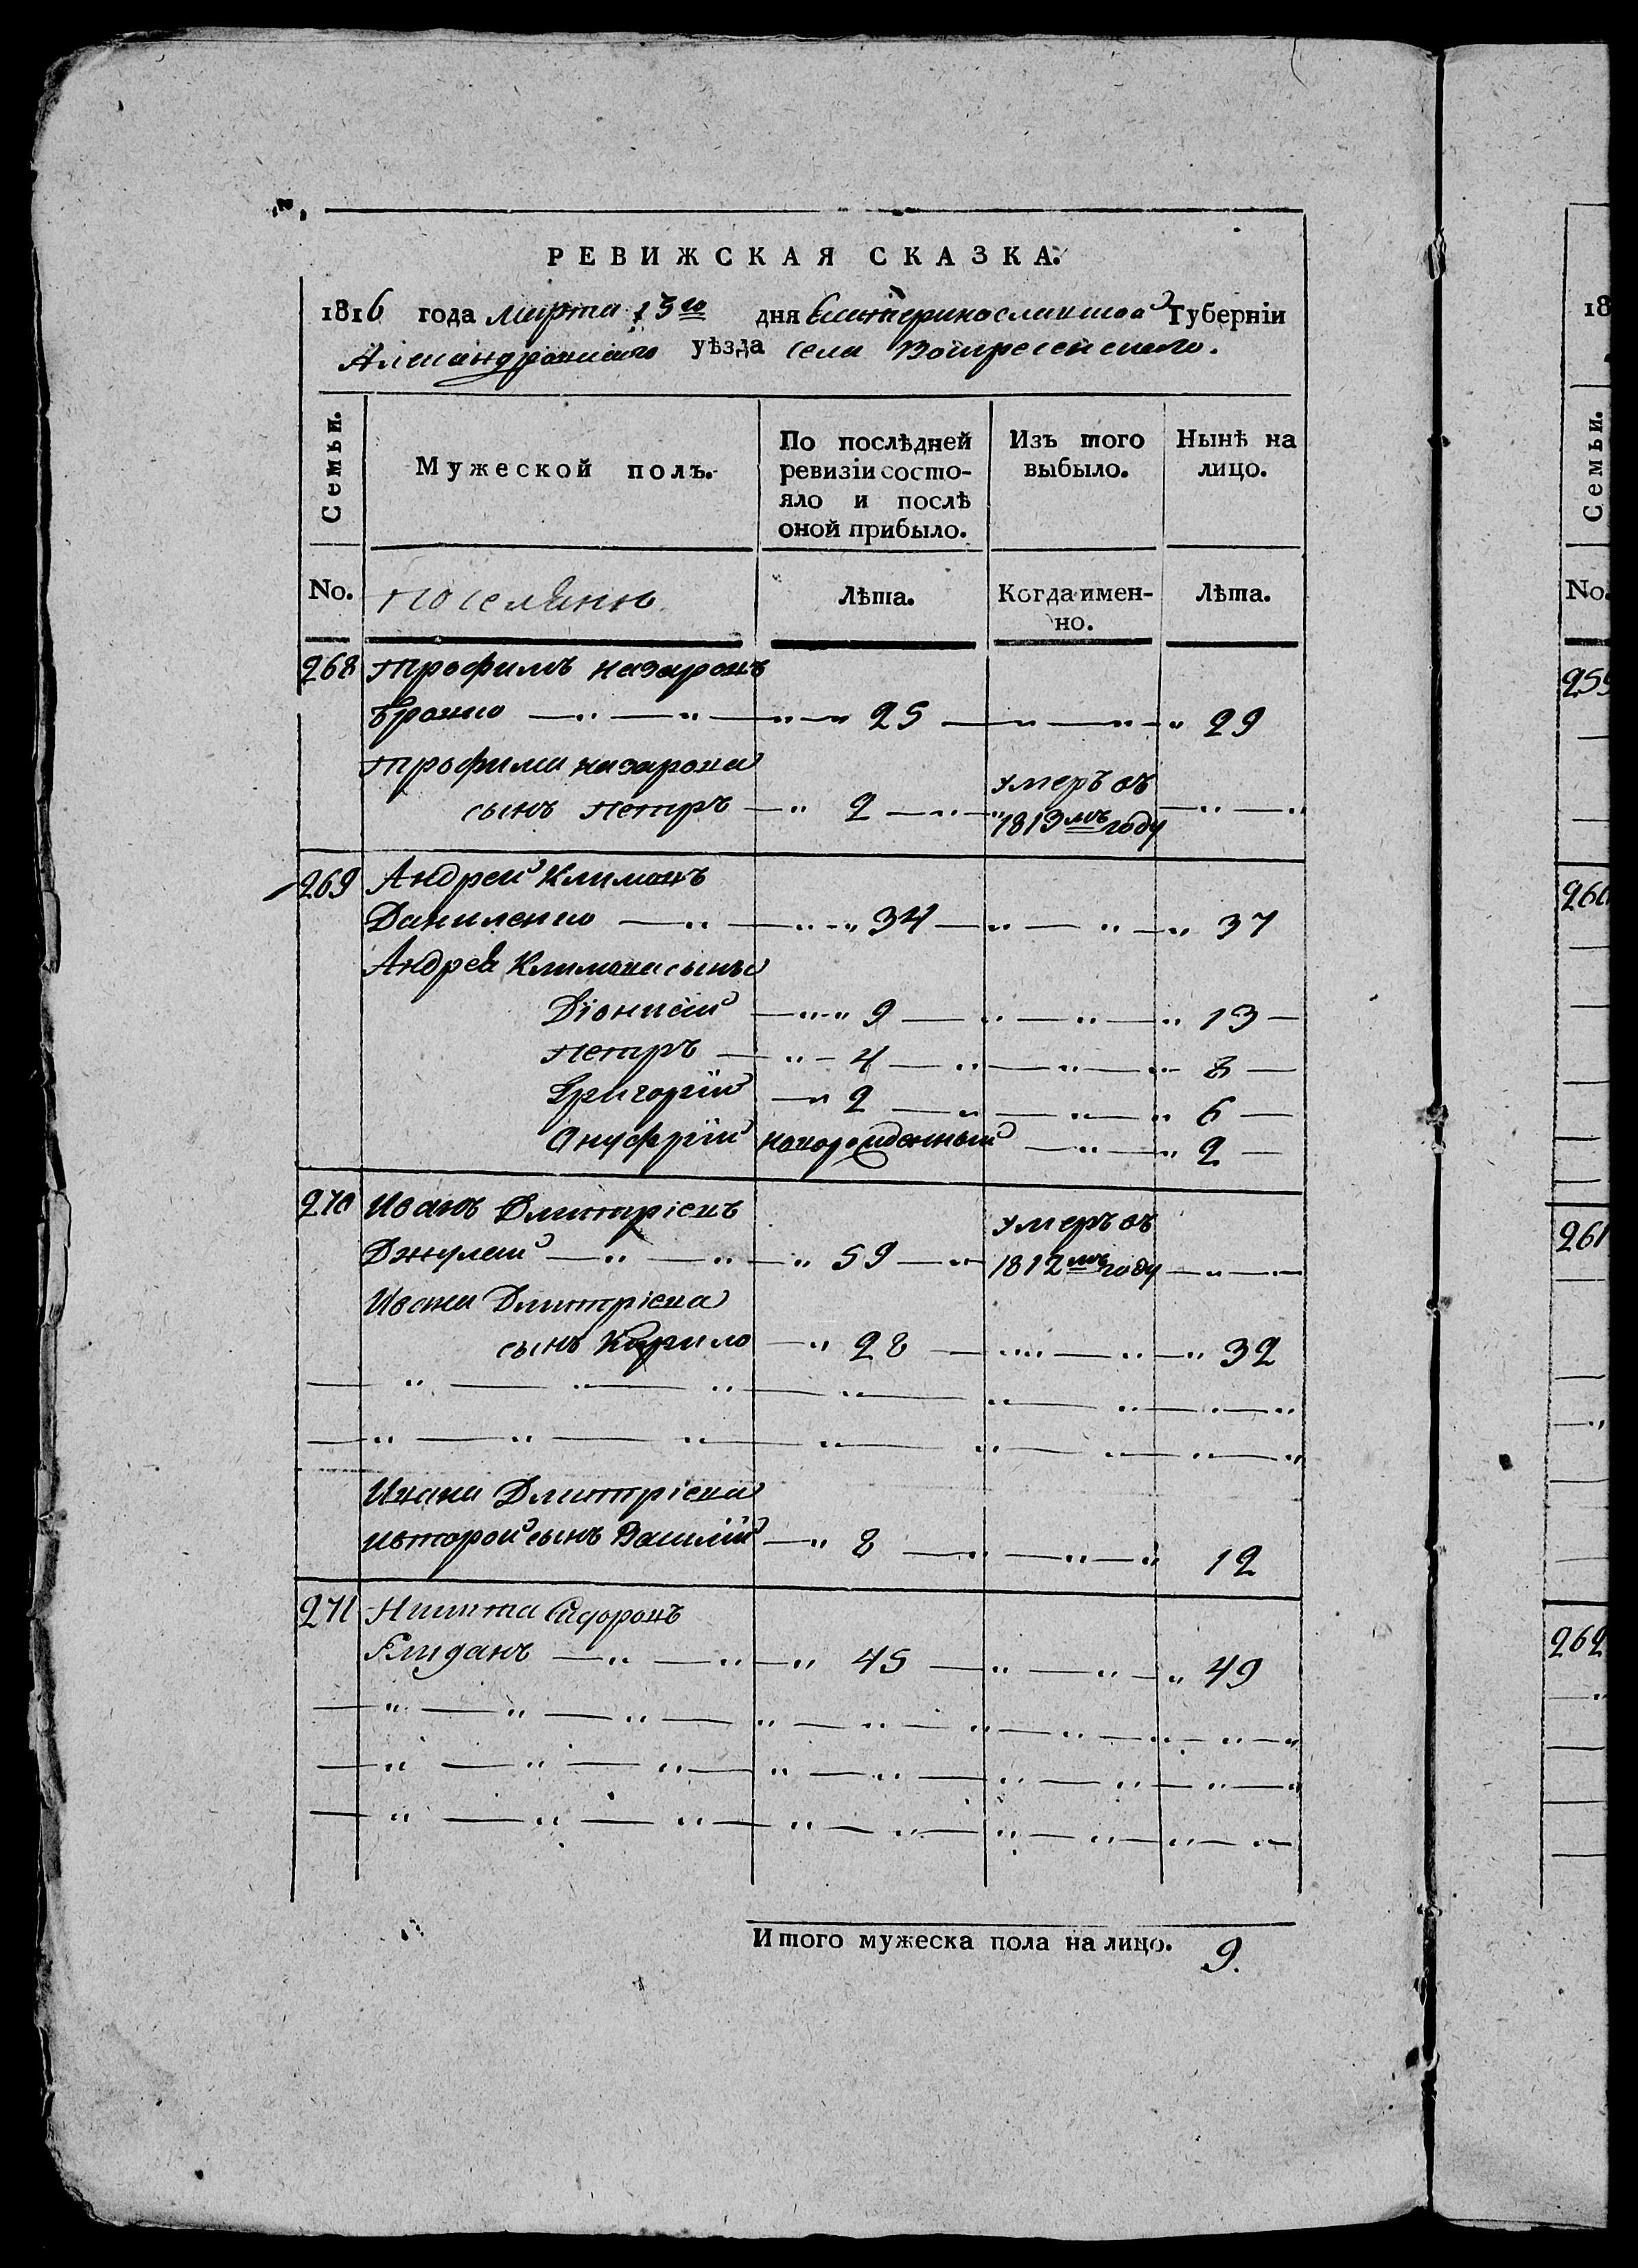 РЕВИЖСКАЯ СКАЗКА.
1816 года марта 13го дня Екатеринославской Губерніи
Александровскаго уѣзда села Воскресенскаго.
Семьи.
Мужеской полъ.
По послѣдней
ревизіи состо-
яло и послѣ
оной прибыло.
Изъ того
выбыло.
Нынѣ на
лицо.
No.
поселянъ
Лѣта.
Когда имен-
но.
Лѣта.
268 Трофимъ Назаровъ
25 29
Трофима Назарова
умеръ въ
сынъ Петръ 2 1813мъ году
269 Андрей Климовъ
Даниленко 34 37
Андрея Климова сыны
Діонисій 9 13
Петръ 4 8
Григорій 2 6
Онуфрій новорожденный 2
270 Иванъ Дмитріевъ
умеръ въ
Джулай 59 1812мъ году
Ивана Дмитріева
сынъ Кирило 28 32
Ивана Дмитріева
второй сынъ Василій 8 12
271 Никита Сидоровъ
45 49
Итого мужеска пола на лицо. 9.
18
Семьи.
No.
259
260
261
262